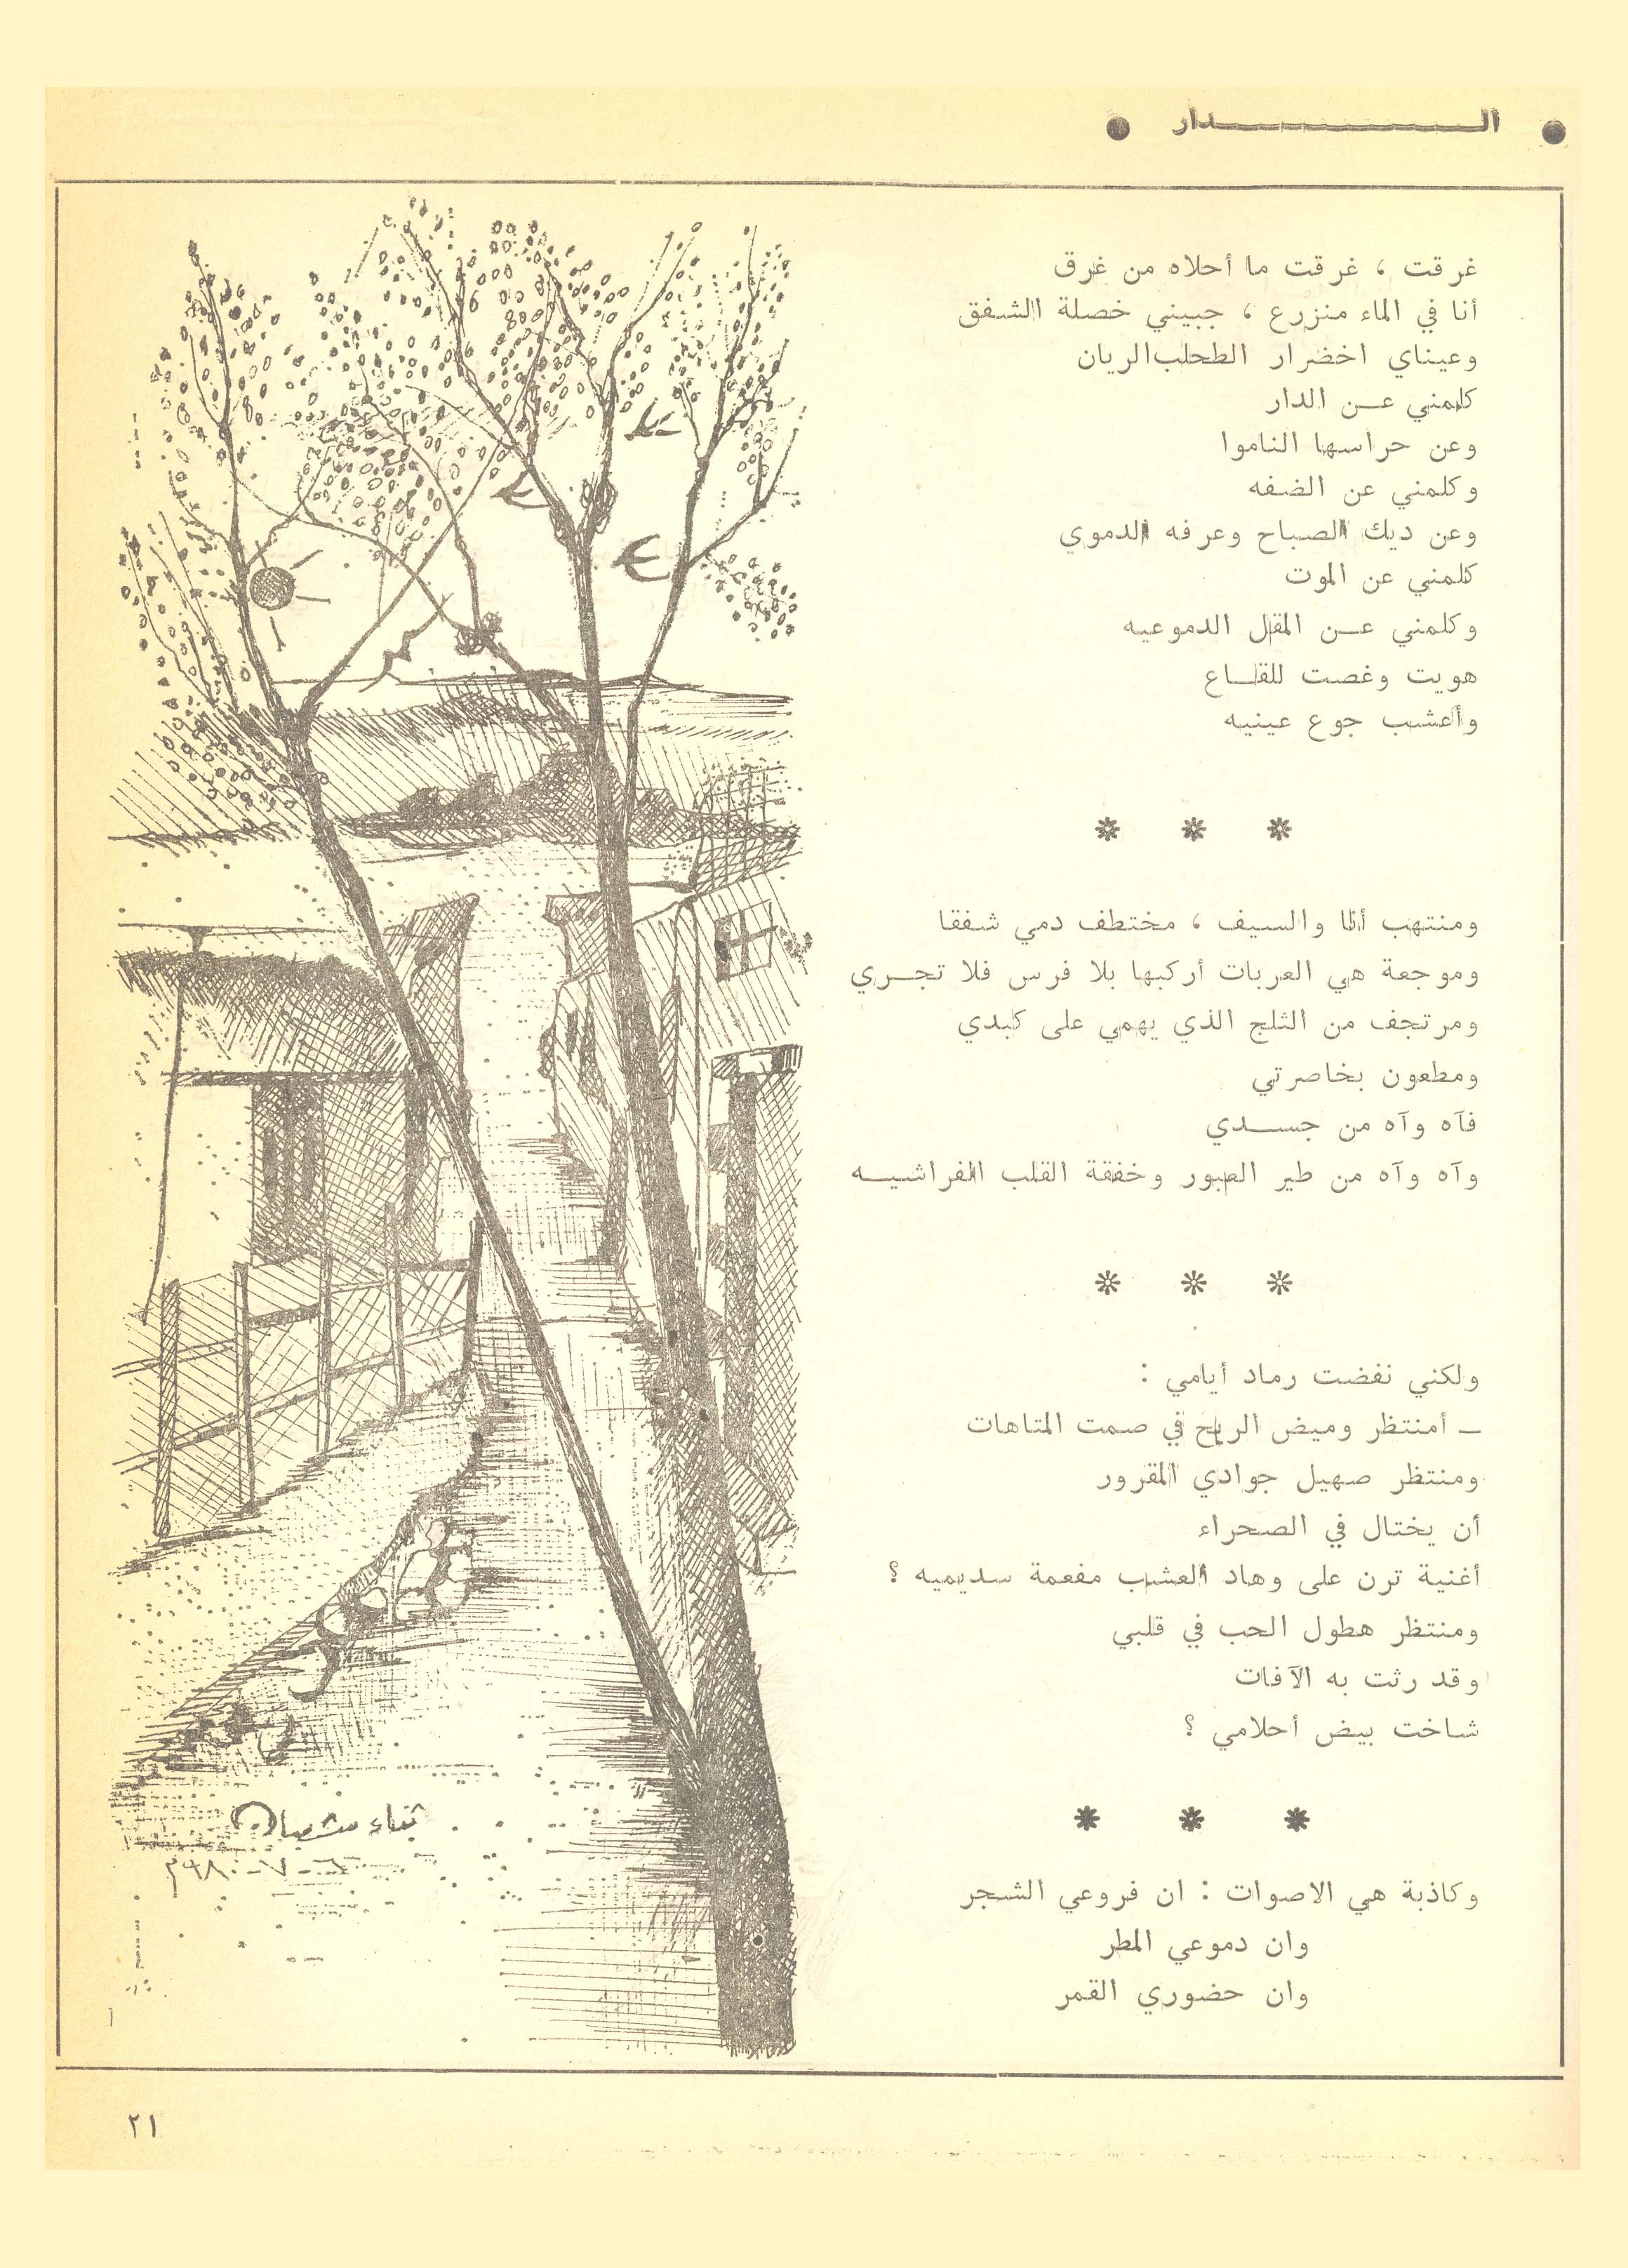 الـــدار
غرقت ، غرقت ما أحلاه من غرق
أنا في الماء منزرع ، جبيني خصلة الشفق
وعيناي اخضرار الطحلب الريان
كلمني عن الدار
وعن حراسها الناموا
وكلمني عن الضفه
وعن ديك الصباح وعرفه الدموي
كلمني عن الموت
وكلمني عن المقل الدموعيه
هويت وغصت للقاع
وأعشب جوع عينيه
* * *
ومنتهب أنا والسيف ، مختطف دمي شفقا
وموجعة هي العربات أركبها بلا فرس فلا تجري
ومرتجف من الثلج الذي يهمي على كبدي
ومطعون بخاصرتي
فآه وآه من جسدي
وآه وآه من طير العبور وخفقة القلب الفراشيه
* * *
ولكني نفضت رماد أيامي :
— أمنتظر وميض الريح في صمت المتاهات
ومنتظر صهيل جوادي المقرور
أن يختال في الصحراء
أغنية ترن على وهاد العشب مفعمة سديميه ؟
ومنتظر هطول الحب في قلبي
وقد رثت به الآفات
شاخت بيض أحلامي ؟
* * *
وكاذبة هي الاصوات : ان فروعي الشجر
وان دموعي المطر
وان حضوري القمر
ثناء شعبان
٢١